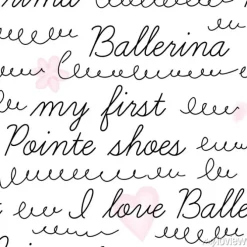 Ballerina
my first
Pointe shoes
I love Balle